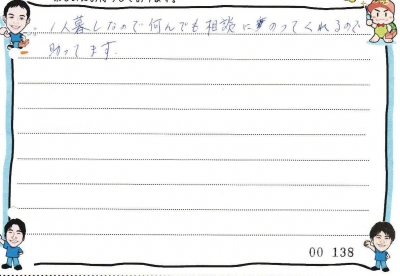 1人暮しなので何んでも相談にのってくれるので
助ってます.
00 138